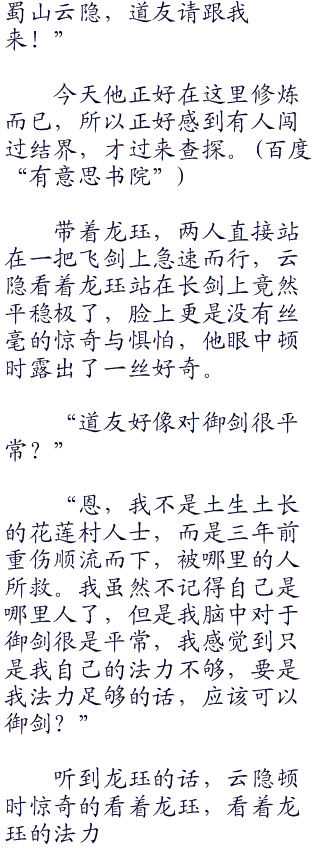 蜀山云隐，道友请跟我
来！”
今天他正好在这里修炼
而已，所以正好感到有人闯
过结界，才过来查探。(百度
“有意思书院”)
带着龙珏，两人直接站
在一把飞剑上急速而行，云
隐看着龙珏站在长剑上竟然
平稳极了，脸上更是没有丝
毫的惊奇与惧怕，他眼中顿
时露出了一丝好奇。
“道友好像对御剑很平
常？”
“恩，我不是土生土长
的花莲村人士，而是三年前
重伤顺流而下，被哪里的人
所救。我虽然不记得自己是
哪里人了，但是我脑中对于
御剑很是平常，我感觉到只
是我自己的法力不够，要是
我法力足够的话，应该可以
御剑？”
听到龙珏的话，云隐顿
时惊奇的看着龙珏，看着龙
珏的法力